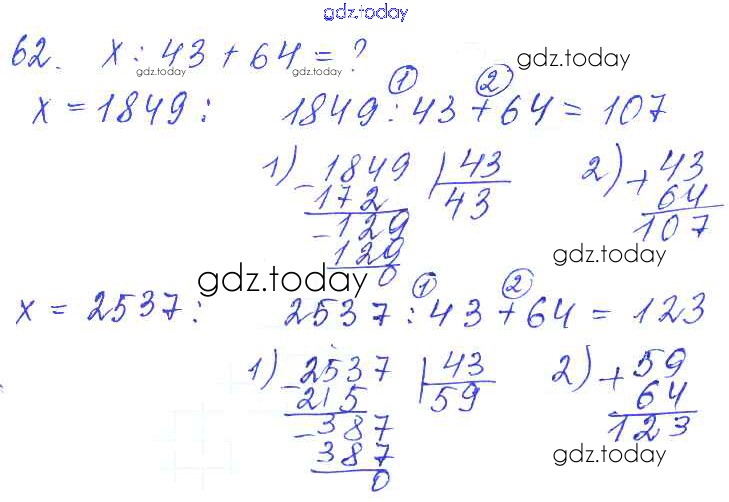 gdz.today
62. x : 43 + 64 = ?
gdz.today gdz.today gdz.today
1 2
x = 1849 : 1849 : 43 + 64 = 107
1) - 1849 | 43 2) + 43
172 43 64
- 129 107
129 gdz.today
0
gdz.today
1 2
x = 2537 : 2537 : 43 + 64 = 123
1) - 2537 | 43 2) + 59
215 59 64
- 387 123
387
0 gdz.today